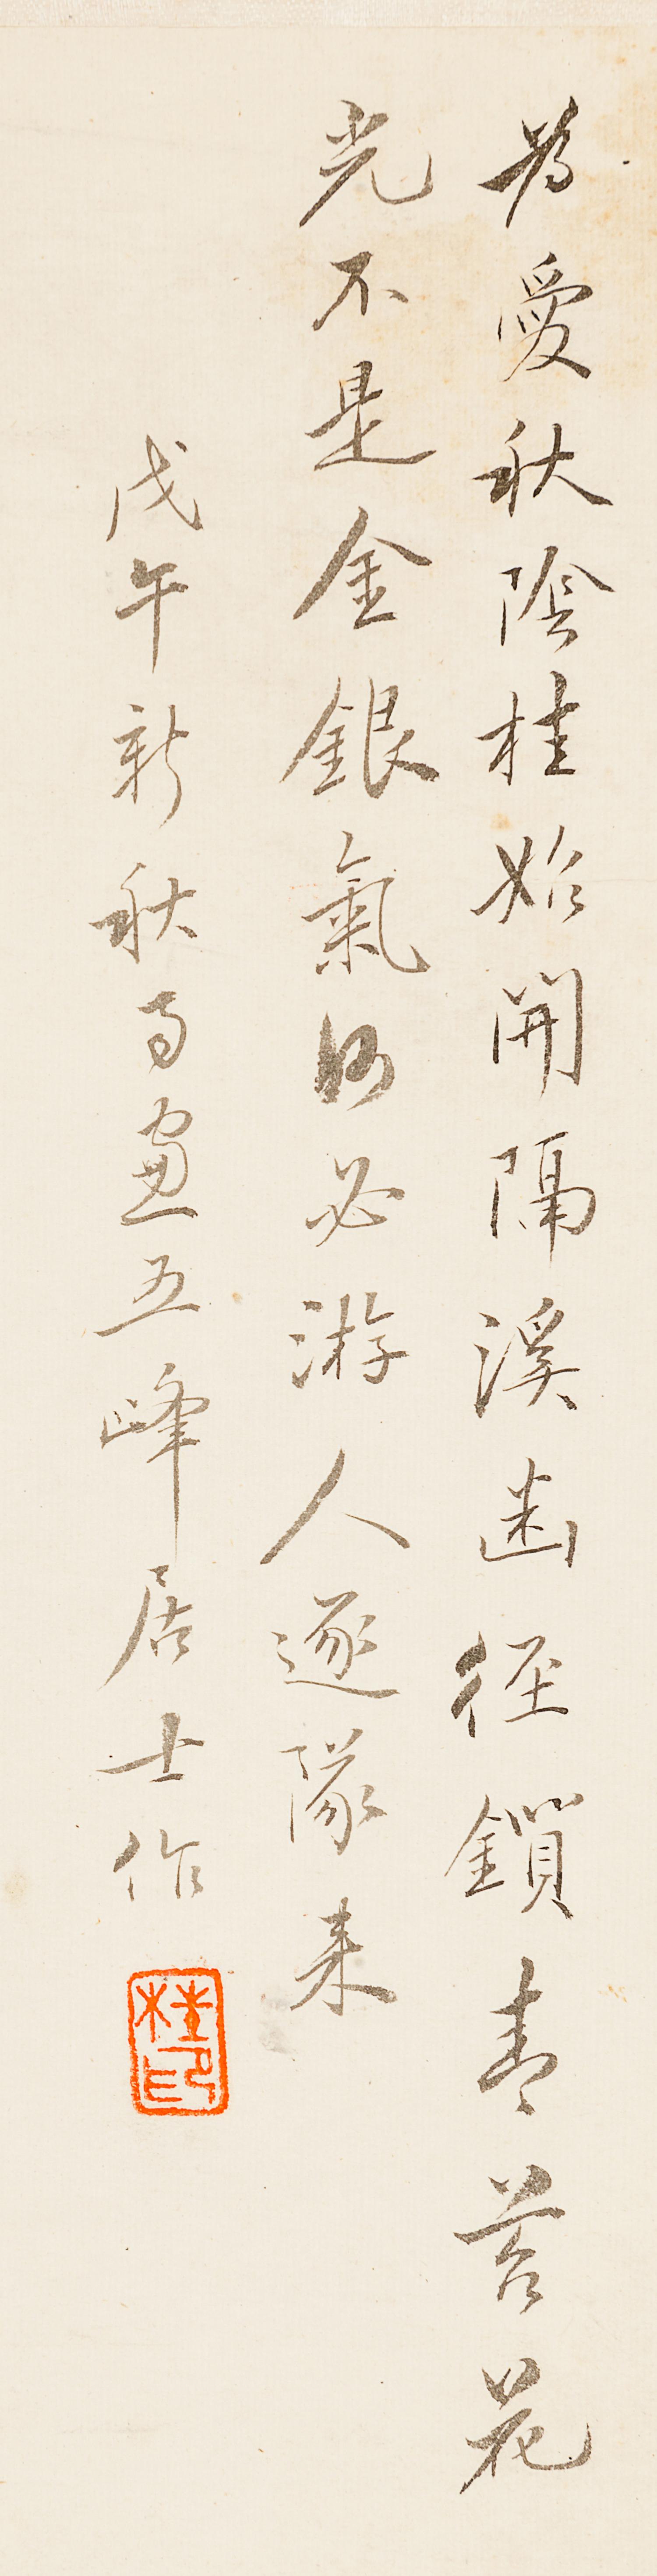 為愛秋陰桂始開隔溪幽徑鎖青苔花
光不是金銀氣何必游人逐隊来
戊午新秋
畫五峰居士作
桂印